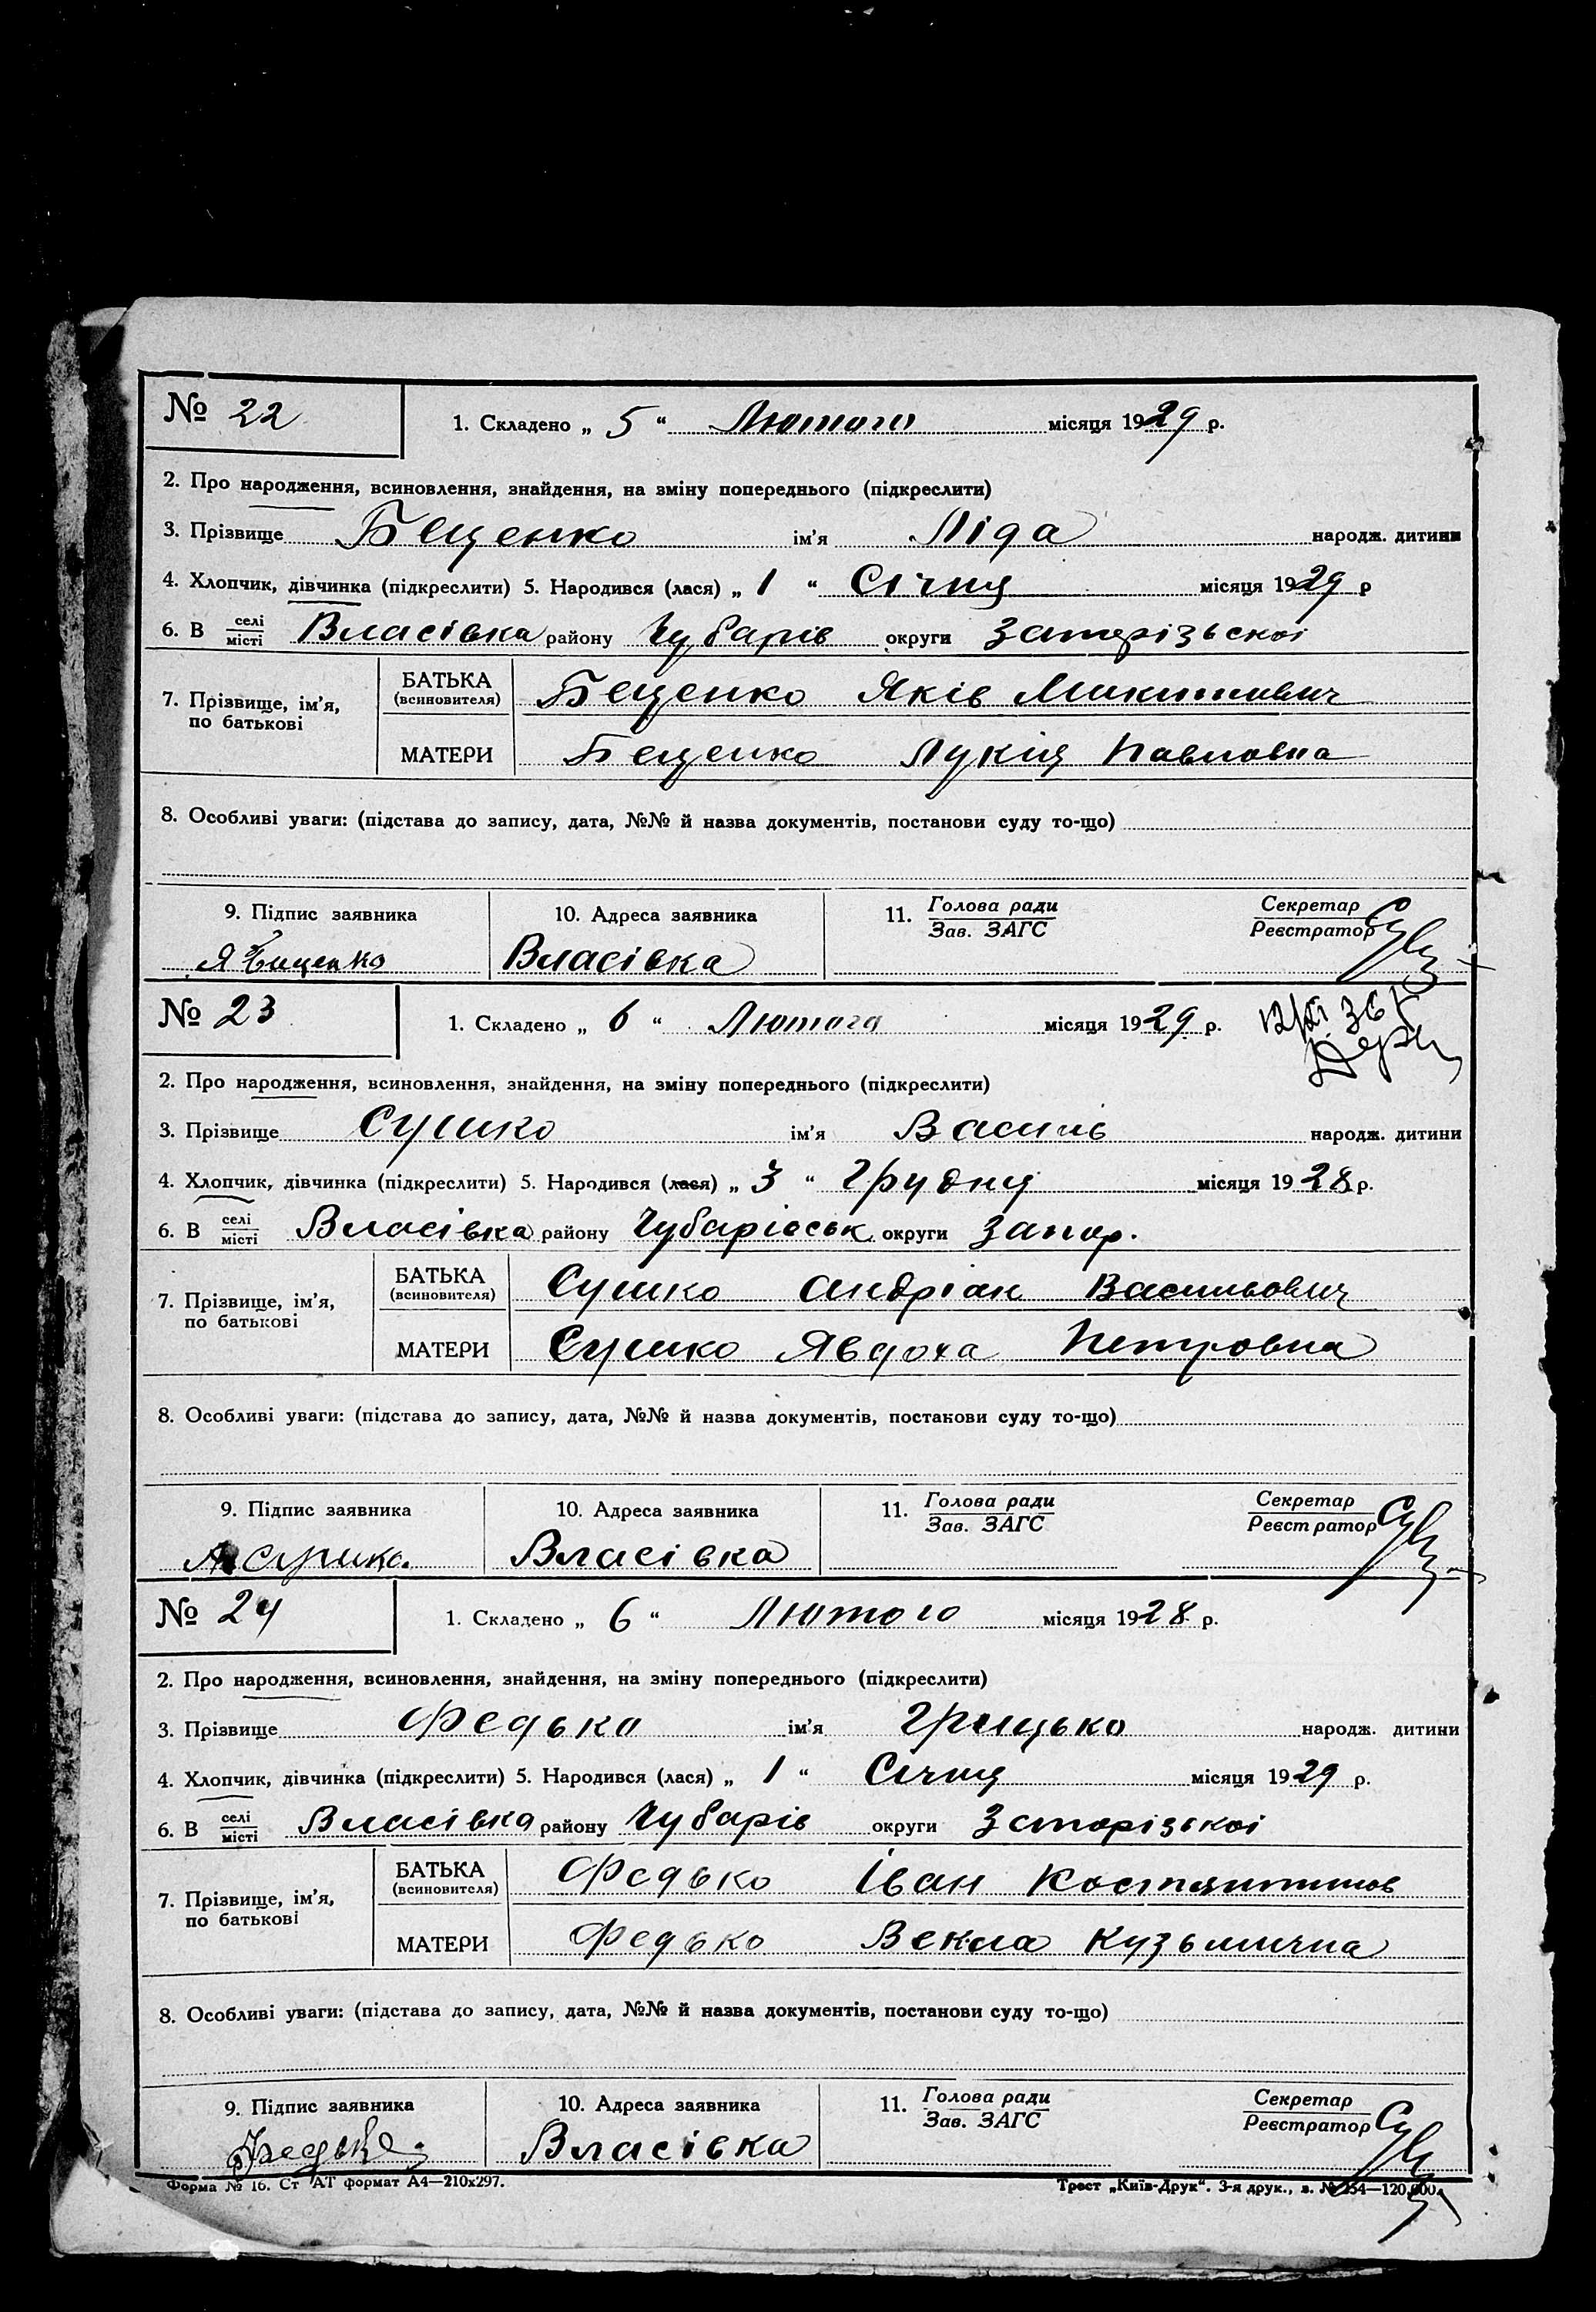 № 22
1. Складено „ 5 “ Лютого місяця 1929 р.
2. Про народження, всиновлення, знайдення, на зміну попереднього (підкреслити)
3. Прізвище Беценко ім’я Ліда народж. дитини
4. Хлопчик, дівчинка (підкреслити) 5. Народився (лася) „ 1 “ Січня місяця 1929 р
6. В селі/місті Власівка району Чубарів округи Запорізьскої
7. Прізвище, ім’я, по батькові
БАТЬКА (всиновителя) Беценко Яків Микитович
МАТЕРИ Беценко Лукія Павловна
8. Особливі уваги: (підстава до запису, дата, №№ й назва документів, постанови суду то-що)
9. Підпис заявника 10. Адреса заявника 11. Голова ради/Зав. ЗАГС Секретар/Реєстратор
Я Беценко Власівка
№ 23
1. Складено „ 6 “ Лютого місяця 1929 р.
2. Про народження, всиновлення, знайдення, на зміну попереднього (підкреслити)
3. Прізвище Сушко ім’я Василь народж. дитини
4. Хлопчик, дівчинка (підкреслити) 5. Народився (лася) „ 3 “ Грудня місяця 1928 р.
6. В селі/місті Власівка району Чубарівськ округи Запор.
7. Прізвище, ім’я, по батькові
БАТЬКА (всиновителя) Сушко Андріан Васильович
МАТЕРИ Сушко Явдоха Петровна
8. Особливі уваги: (підстава до запису, дата, №№ й назва документів, постанови суду то-що)
9. Підпис заявника 10. Адреса заявника 11. Голова ради/Зав. ЗАГС Секретар/Реєстратор
А Сушко. Власівка
№ 24
1. Складено „ 6 “ Лютого місяця 1928 р.
2. Про народження, всиновлення, знайдення, на зміну попереднього (підкреслити)
3. Прізвище Федько ім’я Грицько народж. дитини
4. Хлопчик, дівчинка (підкреслити) 5. Народився (лася) „ 1 “ Січня місяця 1929 р.
6. В селі/місті Власівка району Чубарів округи Запорізької
7. Прізвище, ім’я, по батькові
БАТЬКА (всиновителя) Федько Іван Костянтинов
МАТЕРИ Федько Векла Кузьмична
8. Особливі уваги: (підстава до запису, дата, №№ й назва документів, постанови суду то-що)
9. Підпис заявника 10. Адреса заявника 11. Голова ради/Зав. ЗАГС Секретар/Реєстратор
Федько Власівка
Форма № 16. Ст АТ формат А4—210х297. Трест „Київ-Друк“. 3-я друк., з.